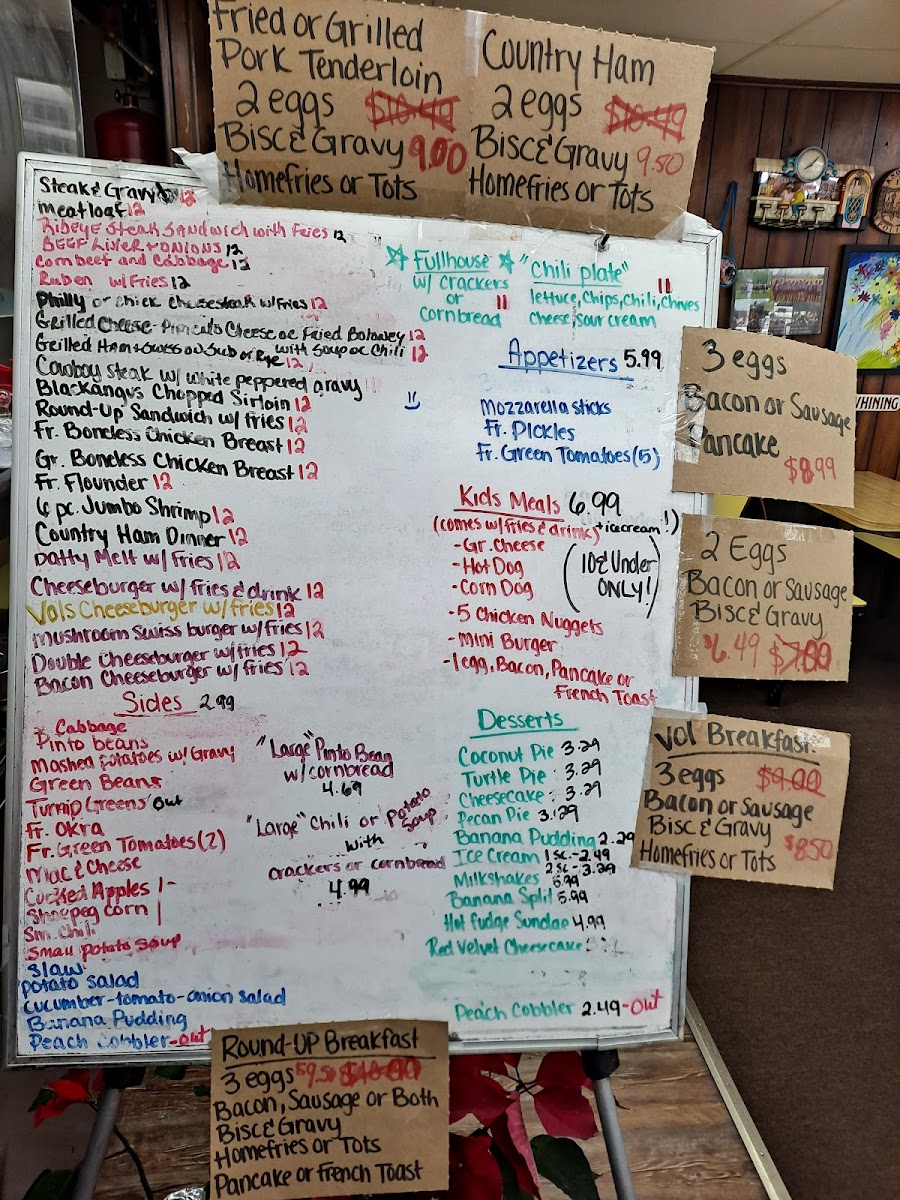 Fried or Grilled
Pork Tenderloin
2 eggs $10.49
Bisc & Gravy 9.00
Homefries or Tots
Country Ham
2 eggs $10.49
Bisc & Gravy 9.50
Homefries or Tots
Steak & Gravy 12
meatloaf 12
Ribeye Steak Sandwich with Fries 12
BEEF Liver + ONIONS 12
Cornbeef and Cabbage 12
Ruben w/ Fries 12
Philly or Chick Cheesesteak w/Fries 12
Grilled Cheese-Pimento Cheese or Fried Boloney 12
Grilled Ham & Swiss on Sub or Rye 12 with Soup or Chili 12
Cowboy steak w/ white peppered gravy
Blackangus Chopped Sirloin 12
Round-Up Sandwich w/ fries 12
Fr. Boneless Chicken Breast 12
Gr. Boneless Chicken Breast 12
Fr. Flounder 12
6 pc. Jumbo Shrimp 12
Country Ham Dinner 12
Patty Melt w/ fries 12
Cheeseburger w/ fries & drink 12
Vols Cheeseburger w/ fries 12
mushroom swiss burger w/ fries 12
Double Cheeseburger w/ fries 12
Bacon Cheeseburger w/ fries 12
Sides 2.99
Cabbage
Pinto beans
Mashed potatoes w/ Gravy
Green Beans
Turnip Greens Out
Fr. Okra
Fr. Green Tomatoes (2)
Mac & Cheese
Cooked Apples
Shoepeg corn
Sm. Chili
Small potato soup
Slaw
potato salad
cucumber-tomato-onion salad
Banana Pudding
Peach Cobbler-out
"Large" Pinto Bean
w/ cornbread
4.69
"Large" Chili or Potato
Soup
with
crackers or cornbread
4.99
Fullhouse
w/ crackers
or 11
cornbread
"Chili plate"
11
lettuce, Chips, Chili, Chives
Cheese, Sour cream
Appetizers 5.99
Mozzarella sticks
Fr. Pickles
Fr. Green Tomatoes (5)
Kids Meals 6.99
(comes w/ fries & drink) + icecream!)
-Gr. Cheese
-Hot Dog
-Corn Dog
(10 & Under
ONLY!)
-5 Chicken Nuggets
-Mini Burger
-1 egg, Bacon, Pancake or
French Toast
Desserts
Coconut Pie 3.29
Turtle Pie 3.29
Cheesecake 3.29
Pecan Pie 3.29
Banana Pudding 2.29
Ice Cream 1sc.-2.49
2sc.-3.29
Milkshakes 5.99
Banana Split 5.99
Hot fudge Sundae 4.99
Red Velvet Cheesecake
Peach Cobbler 2.49-Out
3 eggs
Bacon or Sausage
Pancake
$8.99
WHINING
2 Eggs
Bacon or Sausage
Bisc & Gravy
$6.49 $7.00
Vol Breakfast
3 eggs $9.00
Bacon or Sausage
Bisc & Gravy
Homefries or Tots $8.50
Round-UP Breakfast
3 eggs $9.50 $10.00
Bacon, Sausage or Both
Bisc & Gravy
Homefries or Tots
Pancake or French Toast